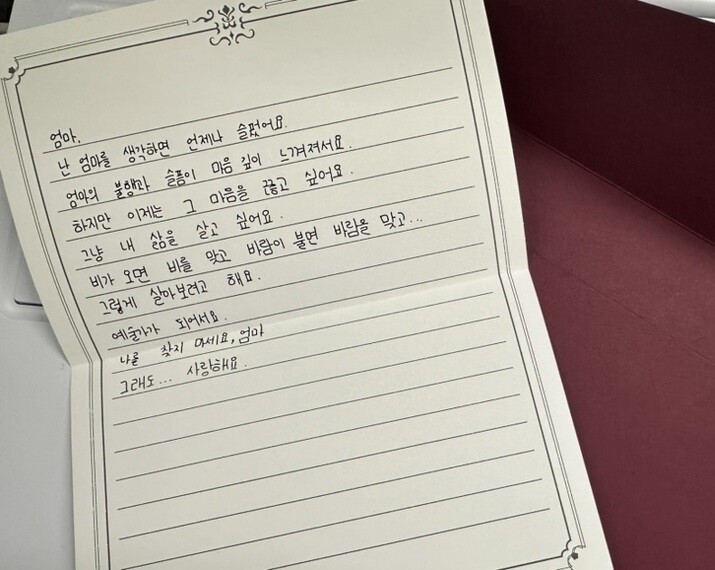 엄마.
난 엄마를 생각하면 언제나 슬펐어요.
엄마의 불행과 슬픔이 마음 깊이 느껴져서요.
하지만 이제는 그 마음을 끊고 싶어요.
그냥 내 삶을 살고 싶어요.
비가 오면 비를 맞고 바람이 불면 바람을 맞고...
그렇게 살아보려고 해요.
예술가가 되어서요.
나를 찾지 마세요, 엄마
그래도... 사랑해요.